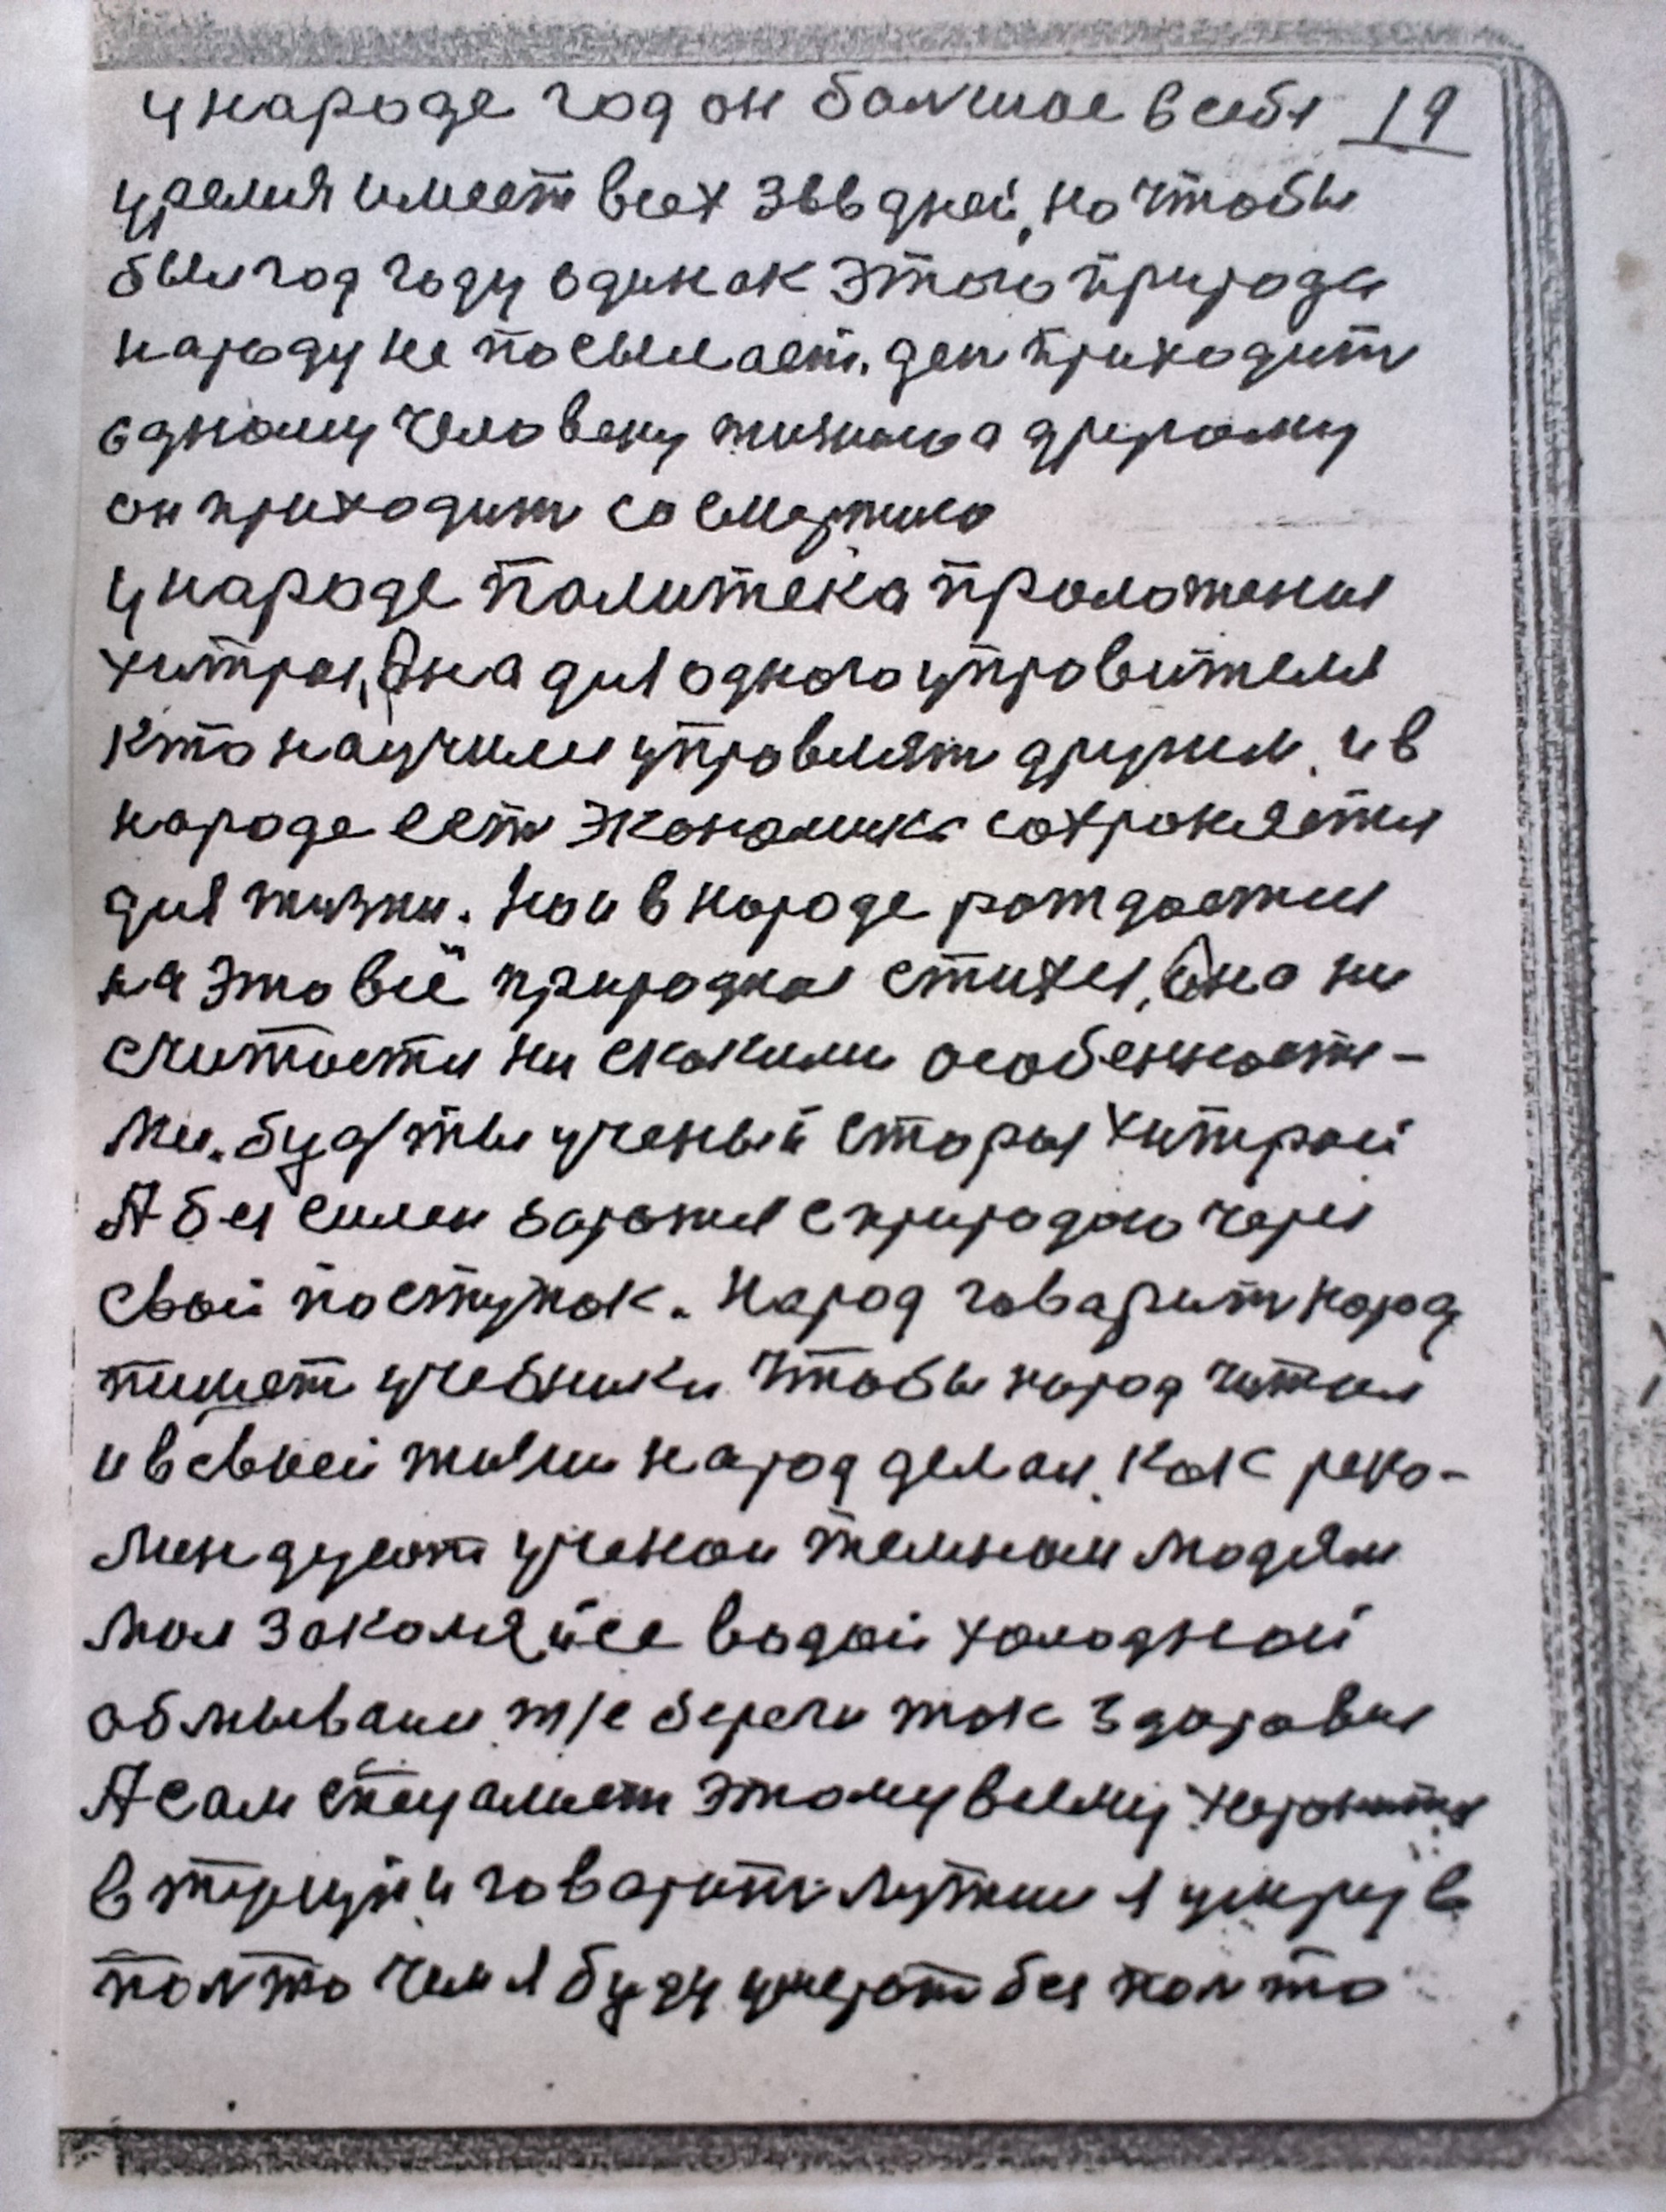 у народе год он болшое в себя 19
уремя имеет всех 366 дней, но чтобы
был год году одинок этого природа
народу не посылает. ден приходит
одному человеку жизньо а другому
он приходит со смертию
у народе политека проложеная
хитрая, Она для одного управителя
кто научился управлят другим. и в
народе ест экономика сохраняется
для жизни. Но и в народе рождается
на это всё природная стихея, Она ни
считается ни скакими особенностя-
ми. буд/ ты ученый старый хитрой
А бессилен боротся с природою через
свой поступок. Народ говарит народ
пишет учебники чтобы народ читал
и в своей жизни народ делал. Как реко-
мендуют ученои темным людям
мол закаляйся водой холодной
обмывайся т/е береги так здаровия
А сам специалист этому всему
в и говарит лутше я умру в
полто чем я буду умерат без полто